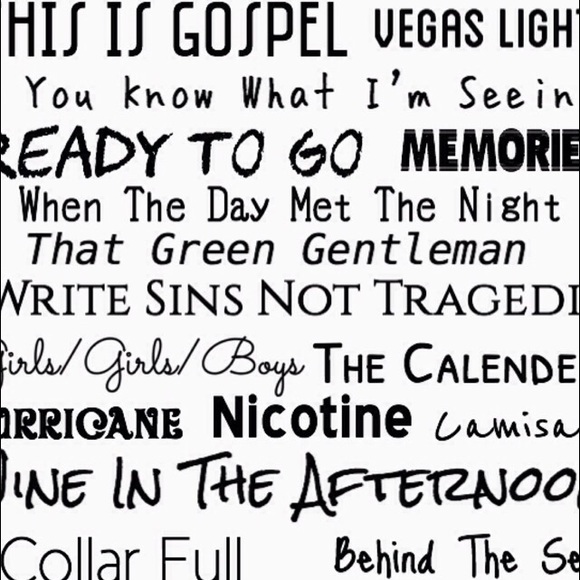 HIS IS GOSPEL VEGAS LIGH
You know What I'm Seein
READY TO GO MEMORIE
When The Day Met The Night
That Green Gentleman
WRITE SINS NOT TRAGEDI
Girls/Girls/Boys THE CALENDE
URRICANE Nicotine Camisa
NINE IN THE AFTERNOO
Collar Full Behind The Se